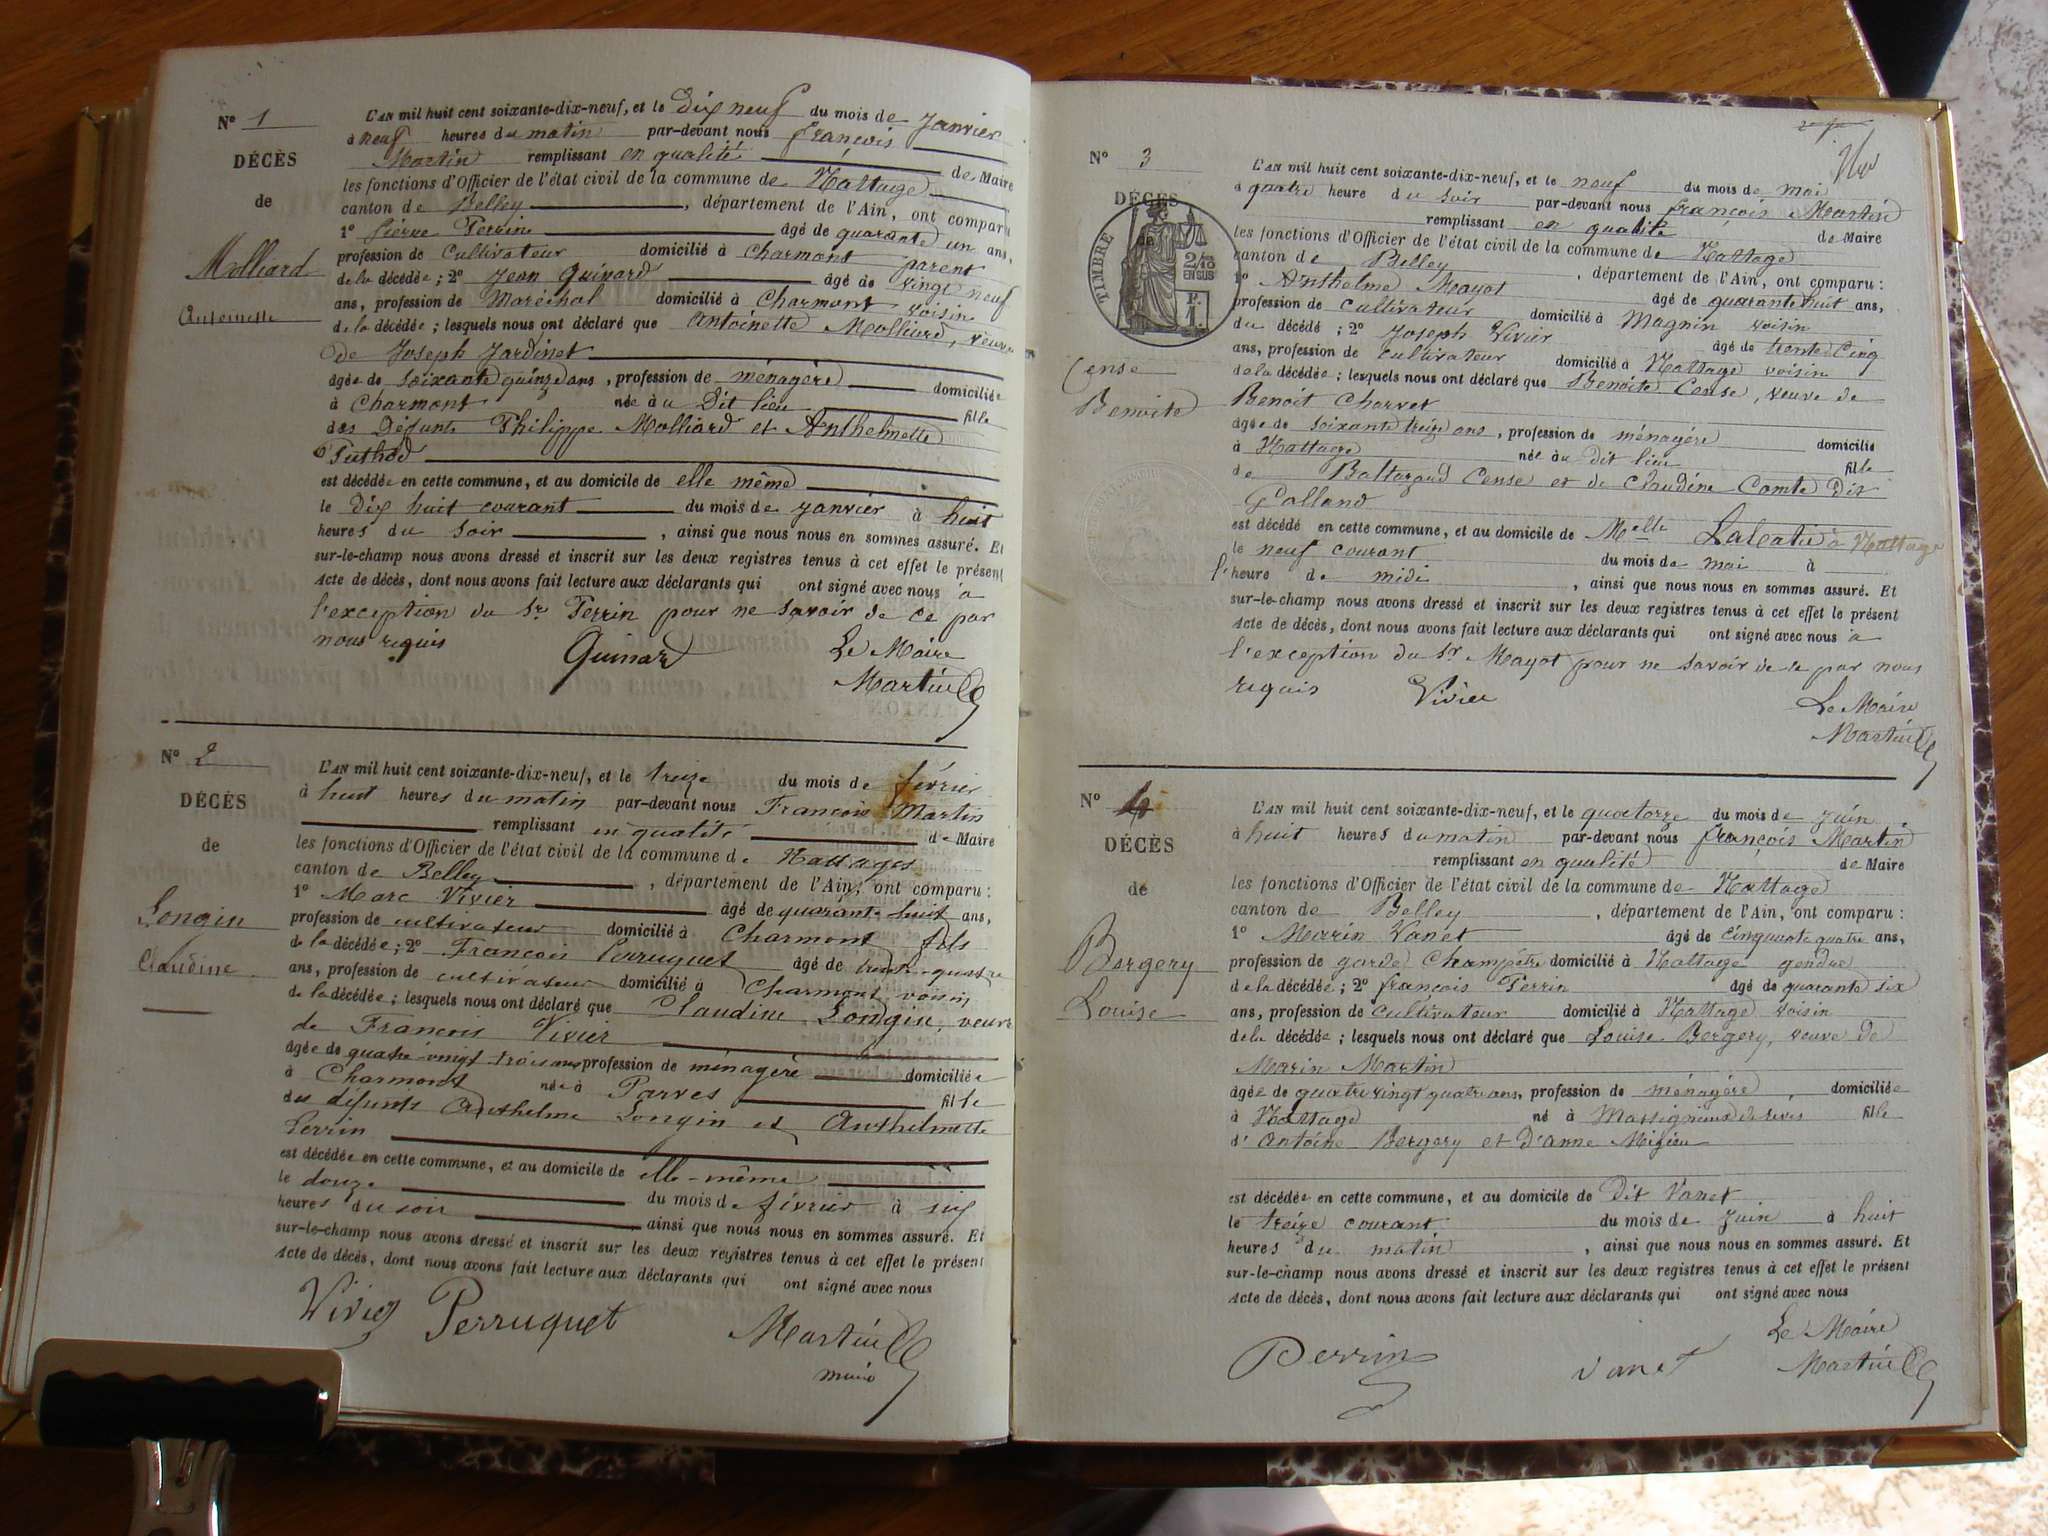 N° 1
DÉCÈS
de
Molliard
Antoinette
L'AN mil huit cent soixante-dix-neuf, et le Dix neuf du mois de Janvier
à neuf heures du matin par-devant nous françois
Martin remplissant en qualité de Maire
les fonctions d'Officier de l'état civil de la commune de Nattage
canton de Belley, département de l'Ain, ont comparu
1° Pierre Perrin âgé de quarante un ans,
profession de cultivateur domicilié à Charmont parent
de la décédée ; 2° Jean Guinard âgé de vingt neuf
ans, profession de Maréchal domicilié à Charmont voisin
de la décédée ; lesquels nous ont déclaré que Antoinette Molliard, veuve
de Joseph Jardinet
âgée de soixante quinze ans, profession de ménagère domiciliée
à Charmont née au Dit lieu fille
des Défunts Philippe Molliard et Anthelmette
Puthod
est décédée en cette commune, et au domicile de elle même
le Dix huit courant du mois de janvier à huit
heures du soir, ainsi que nous nous en sommes assuré. Et
sur-le-champ nous avons dressé et inscrit sur les deux registres tenus à cet effet le présent
Acte de décès, dont nous avons fait lecture aux déclarants qui ont signé avec nous à
l'exception du Sr Perrin pour ne savoir de ce par
nous requis Guinard Le Maire
Martin
N° 2
DÉCÈS
de
Longin
Claudine
L'AN mil huit cent soixante-dix-neuf, et le treize du mois de février
à huit heures du matin par-devant nous François Martin
remplissant en qualité de Maire
les fonctions d'Officier de l'état civil de la commune de Nattages
canton de Belley, département de l'Ain, ont comparu :
1° Marc Vivier âgé de quarante huit ans,
profession de cultivateur domicilié à Charmont fils
de la décédée ; 2° François Perruquet âgé de trente-quatre
ans, profession de cultivateur domicilié à Charmont voisin
de la décédée ; lesquels nous ont déclaré que Claudine Longin, veuve
de François Vivier
âgée de quatre-vingt trois ans profession de ménagère domiciliée
à Charmont née à Parves fille
des défunts Anthelme Longin et Anthelmette
Perrin
est décédée en cette commune, et au domicile de elle-même
le douze du mois de février à six
heures du soir ainsi que nous nous en sommes assuré. Et
sur-le-champ nous avons dressé et inscrit sur les deux registres tenus à cet effet le présent
Acte de décès, dont nous avons fait lecture aux déclarants qui ont signé avec nous
Vivier Perruquet Martin
maire
N° 3
DÉCÈS
de
TIMBRE
2/10
EN SUS
Cense
Benoite
L'AN mil huit cent soixante-dix-neuf, et le neuf du mois de mai
à quatre heure du soir par-devant nous françois Martin
remplissant en qualité de Maire
les fonctions d'Officier de l'état civil de la commune de Nattage
canton de Belley, département de l'Ain, ont comparu :
1° Anthelme Mayot âgé de quarante huit ans,
profession de cultivateur domicilié à Magnin voisin
du décédé ; 2° Joseph Vivier âgé de trente cinq
ans, profession de cultivateur domicilié à Nattage voisin
de la décédée ; lesquels nous ont déclaré que Benoite Cense, veuve de
Benoit Charvet
âgée de soixante treize ans, profession de ménagère domicilie
à Nattage née au Dit lieu fille
de Baltazard Cense et de Claudine Comte Dit
Galland
est décédé en cette commune, et au domicile de Melle à Nattage
le neuf courant du mois de mai à
l'heure de midi, ainsi que nous nous en sommes assuré. Et
sur-le-champ nous avons dressé et inscrit sur les deux registres tenus à cet effet le présent
Acte de décès, dont nous avons fait lecture aux déclarants qui ont signé avec nous à
l'exception du Sr Mayot pour ne savoir de ce par nous
requis Vivier Le Maire
Martin
N° 4
DÉCÈS
de
Bergery
Louise
L'AN mil huit cent soixante-dix-neuf, et le quatorze du mois de Juin
à huit heures du matin par-devant nous françois Martin
remplissant en qualité de Maire
les fonctions d'Officier de l'état civil de la commune de Nattage
canton de Belley, département de l'Ain, ont comparu :
1° Marin Vanet âgé de cinquante quatre ans,
profession de garde Champêtre domicilié à Nattage gendre
de la décédée ; 2° françois Perrin âgé de quarante six
ans, profession de cultivateur domicilié à Nattage voisin
de la décédée ; lesquels nous ont déclaré que Louise Bergery, veuve de
Marin Martin
âgée de quatre vingt quatre ans, profession de ménagère, domiciliée
à Nattage né à Massignieux de rives fille
d'Antoine Bergery et d'anne Mifieu
est décédée en cette commune, et au domicile de Dit Vanet
le treize courant du mois de Juin à huit
heures du matin, ainsi que nous nous en sommes assuré. Et
sur-le-champ nous avons dressé et inscrit sur les deux registres tenus à cet effet le présent
Acte de décès, dont nous avons fait lecture aux déclarants qui ont signé avec nous
Le Maire
Perrin Vanet Martin